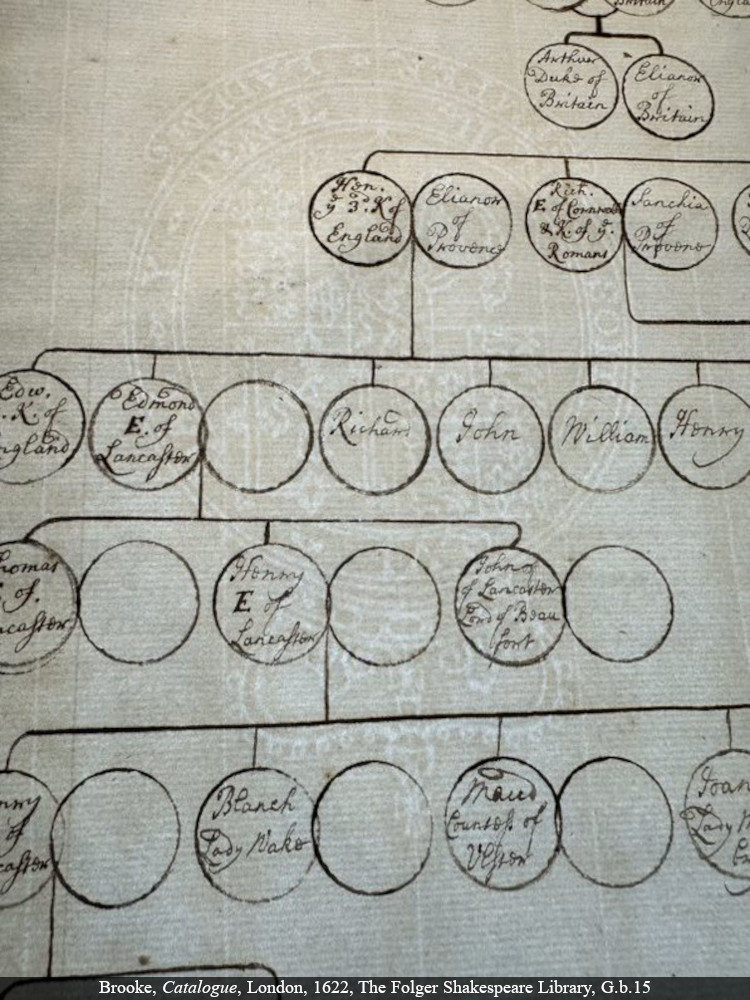 Britain
Arthur
Duke of
Britain
Elianor
of
Britain
Hen.
yᵉ 3.ᵈ K of
England
Elianor
of
Provence
Rich.
E. of Cornwal
& K. of yᵉ.
Romans
Sanchia
of
Provenc
Edw.
K. of
ngland
Edmond
E. of
Lancaster
Richard
John
William
Henry
homas
of.
ncaster
Henry
E of
Lancaster
John of
of Lancaster
Lord of Beau
fort
nry
of
caster
Blanch
Lady Wake
Maud
Countess of
Vlster
Joan
Lady M
Brooke, Catalogue, London, 1622, The Folger Shakespeare Library, G.b.15